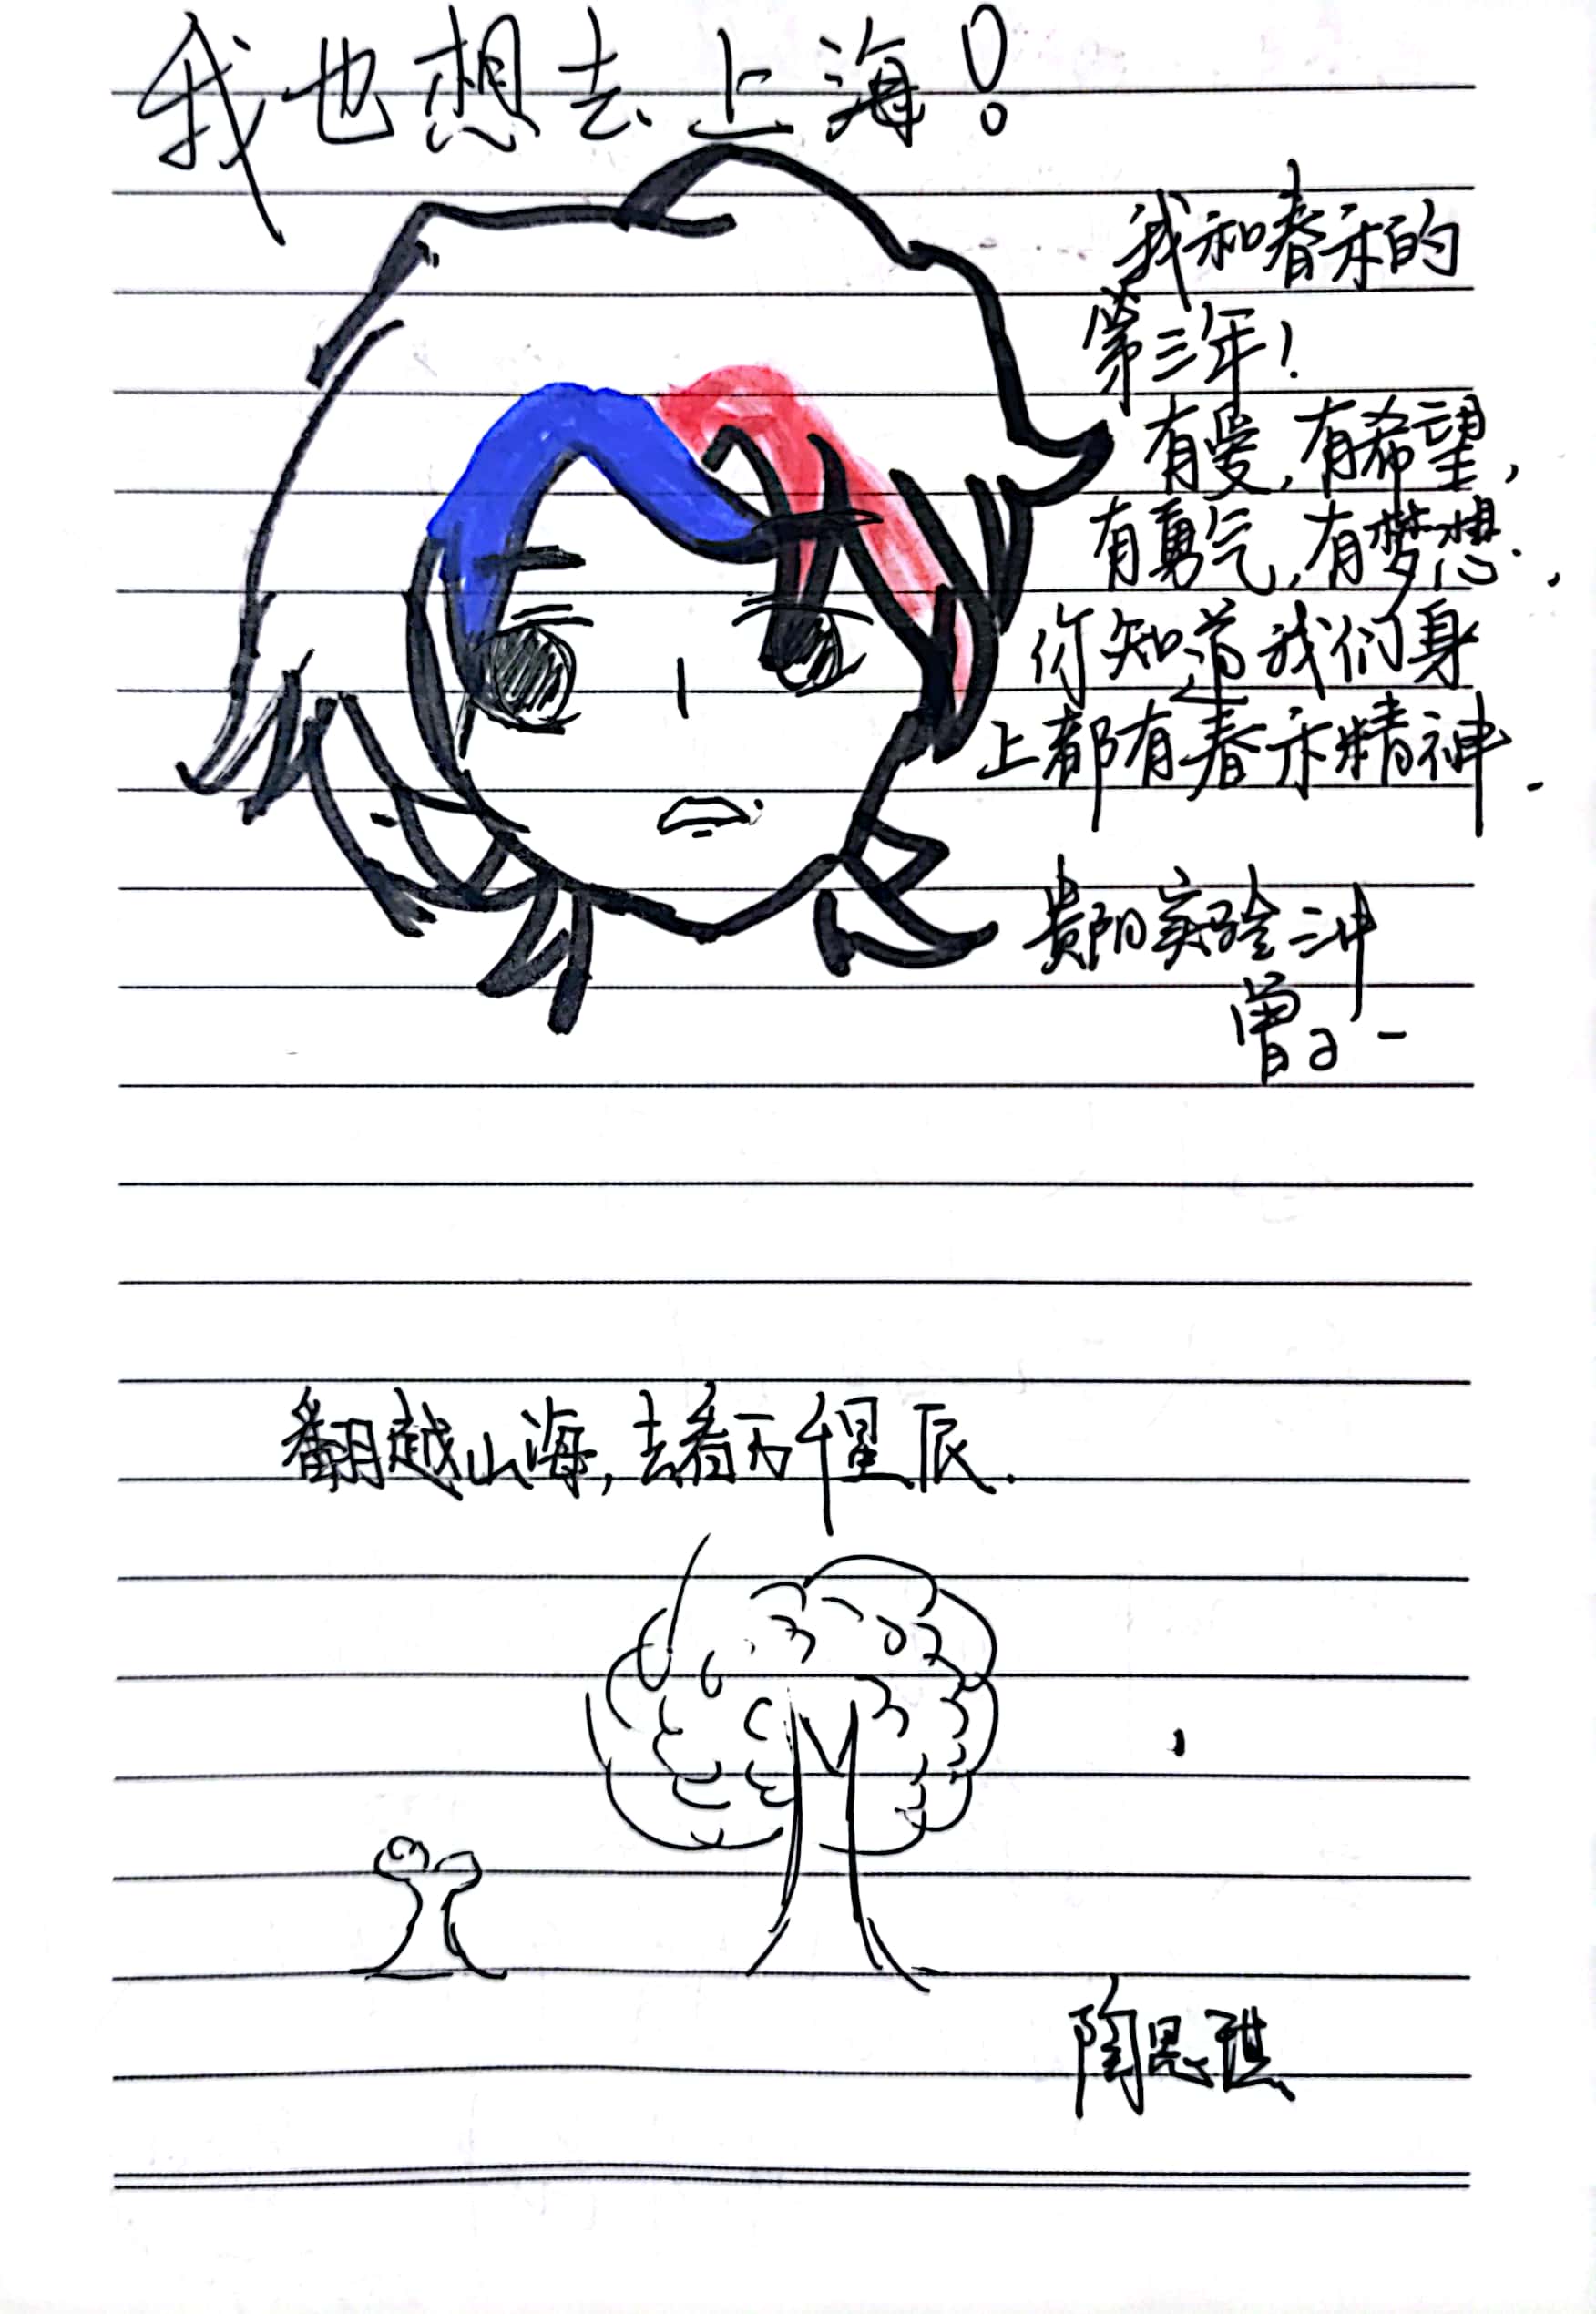 我也想去上海!
我和春禾的
第三年!
有爱,有希望,
有勇气,有梦想.,
你知道我们身
上都有春禾精神.
贵阳实验三中
曾子一
翻越山海,去看万千星辰.
陶思琪